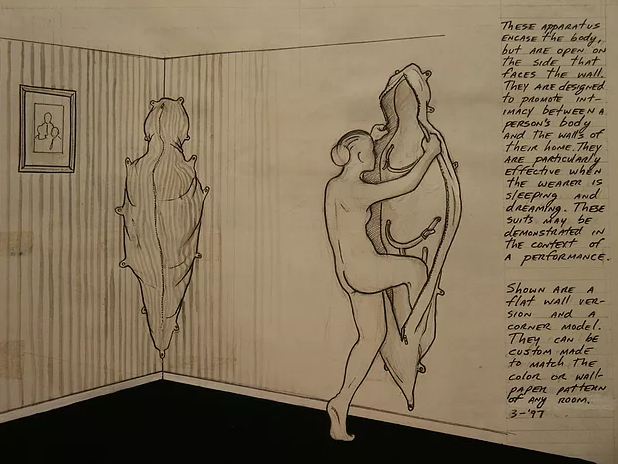 THESE APPARATUS
ENCASE THE BODY,
BUT ARE OPEN ON
THE SIDE THAT
FACES THE WALL.
THEY ARE DESIGNED
TO PROMOTE INT-
IMACY BETWEEN A
PERSON'S BODY
AND THE WALLS OF
THEIR HOME. THEY
ARE PARTICULARLY
EFFECTIVE WHEN
THE WEARER IS
SLEEPING AND
DREAMING. THESE
SUITS MAY BE
DEMONSTRATED IN
THE CONTEXT OF
A PERFORMANCE.
SHOWN ARE A
FLAT WALL VER-
SION AND A
CORNER MODEL.
THEY CAN BE
CUSTOM MADE
TO MATCH THE
COLOR OR WALL-
PAPER PATTERN
OF ANY ROOM.
3-'97